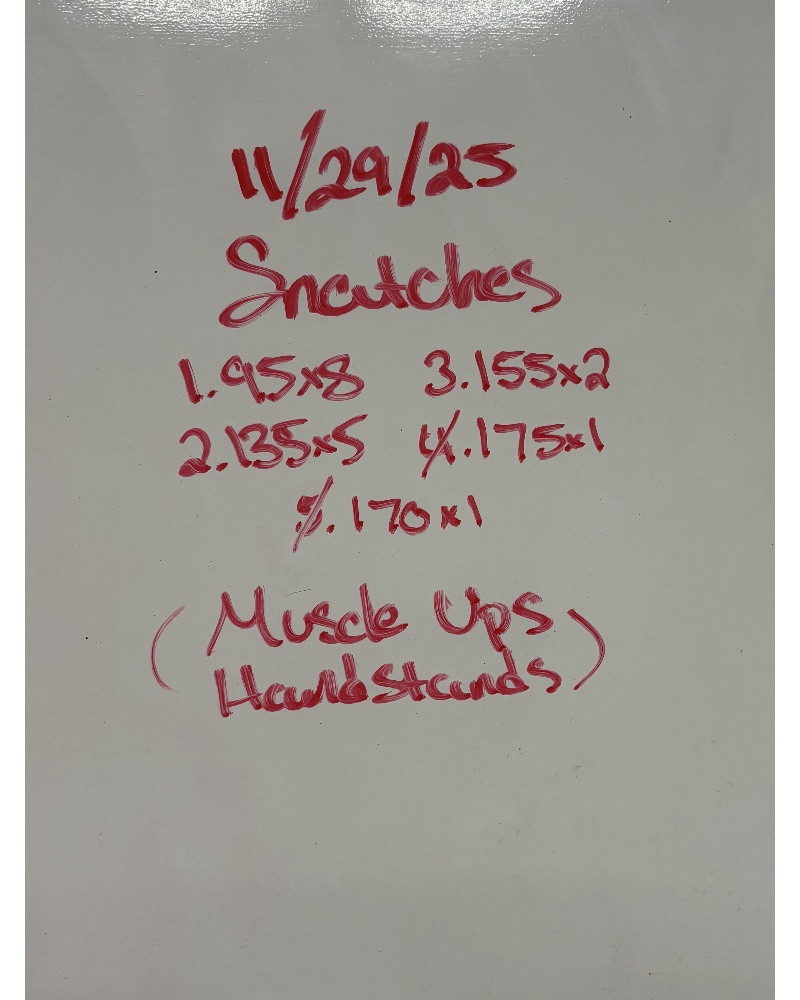 11/29/25
Snatches
1. 95x8 3. 155x2
2. 135x5 4. 175x1
5. 170x1
(Muscle Ups
Handstands)